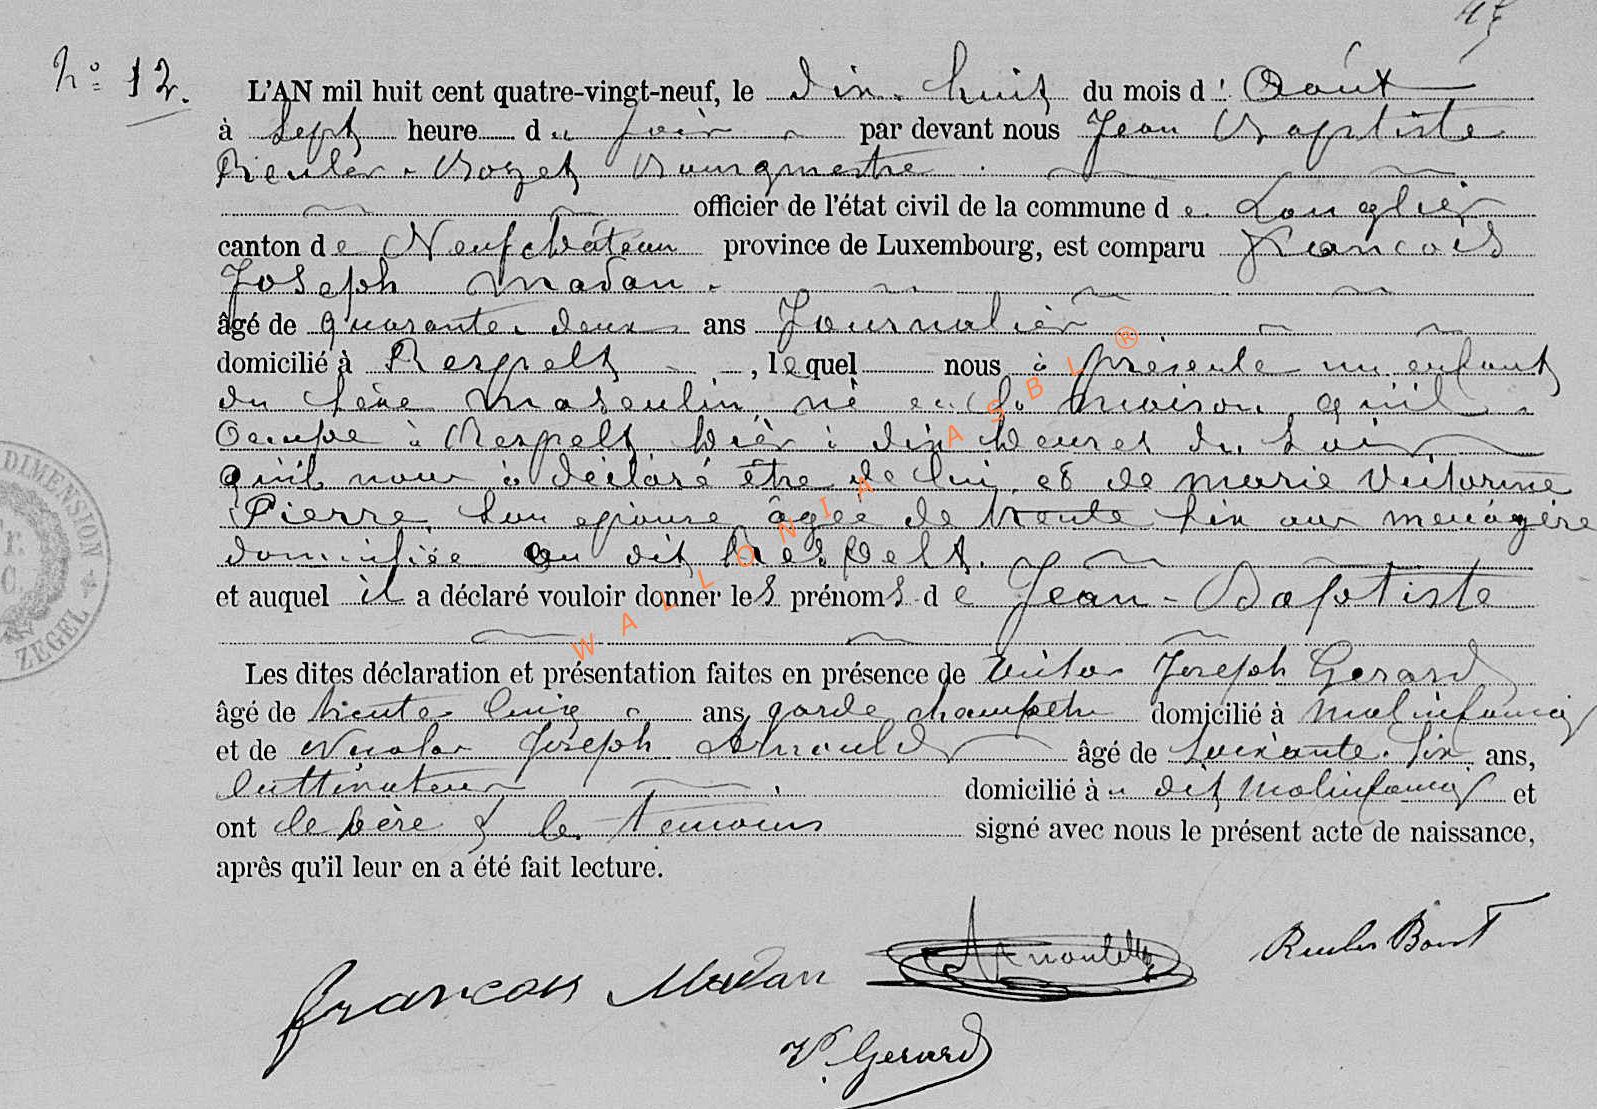 47
N° 12.
L'AN mil huit cent quatre-vingt-neuf, le dix-huit du mois d' Août
à sept heure du soir par devant nous Jean Baptiste
Reuler-Bozet Bourgmestre
officier de l'état civil de la commune de Longlier
canton de Neufchâteau province de Luxembourg, est comparu François
Joseph Madan
âgé de quarante-deux ans Journalier
domicilié à Respelt, lequel nous à présenté un enfant
du sexe masculin, né en la maison qu'il
occupe à Respelt hièr à dix heures du soir
qu'il nous à déclaré être de lui et de marie Victorine
Pierre, son epouse, âgée de trente six ans menagère
domiciliée au dit Respelt.
et auquel il a déclaré vouloir donner les prénoms de Jean-Baptiste
Les dites déclaration et présentation faites en présence de Victor Joseph Gerard
âgé de trente cinq ans, garde champêtre domicilié à Molinfaing
et de Nicolas Joseph Arnould âgé de soixante-six ans,
cultivateur domicilié à u dit Molinfaing et
ont le père & les témoins signé avec nous le présent acte de naissance,
après qu'il leur en a été fait lecture.
françois Madan Arnould Reuler Bozet
Vr Gerard
DIMENSION
ZEGEL
WALLONIA ASBL ®